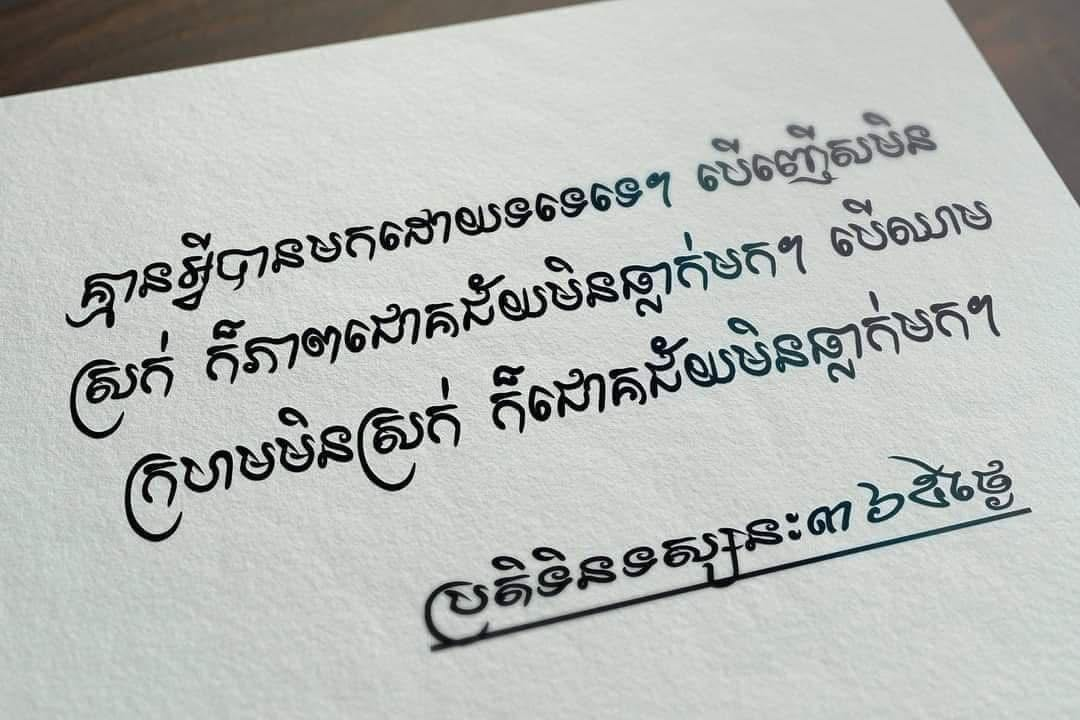 គ្មានអ្វីបានមកដោយទទេទេៗ បើញើសមិន
ស្រក់ ក៏ភាពជោគជ័យមិនធ្លាក់មកៗ បើឈាម
ក្រហមមិនស្រក់ ក៏ជោគជ័យមិនធ្លាក់មកៗ
ប្រតិទិនទស្សនៈ៣៦៥ថ្ងៃ